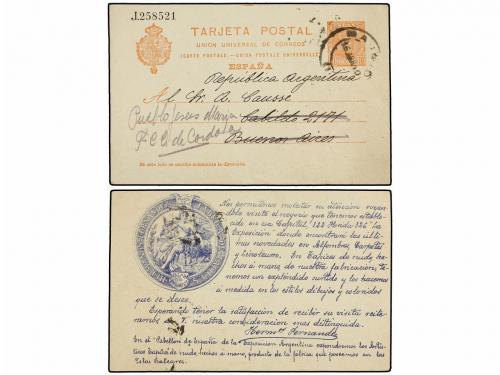 J.258521
TARJETA POSTAL
UNION UNIVERSAL DE CORREOS
(CARTE POSTALE.—UNION POSTALE UNIVERSELLE)
ESPAÑA
República Argentina
Al Sr. A. Causse
Cabildo 2171
Buenos Aires
Pueblo Jesus Maria
F.C.C. de Cordoba
En este lado se escribe solamente la dirección.
Nos permitimos molestar su atención rogan-
dole visite el negocio que tenemos estable-
cido en esa Capital "Florida 326" La
Exposición donde encontrará las últi-
mas novedades en Alfombras, Carpetas
y Linoleums. En Tapices de nudo, he-
chos á mano de nuestra fabricación, te-
nemos un extendido surtido y los hacemos
á medida en los estilos dibujos y coloridos
que se desee.
Esperando tener la satisfacción de recibir su visita reite-
ramos á V. nuestra consideración mas distinguida.
Hermos. Hernandez
En el Pabellón de España de la Exposición Argentina expondremos los
Tapices de nudo, hechos a mano, producto de la fábrica que poseemos en las
Islas Baleares.